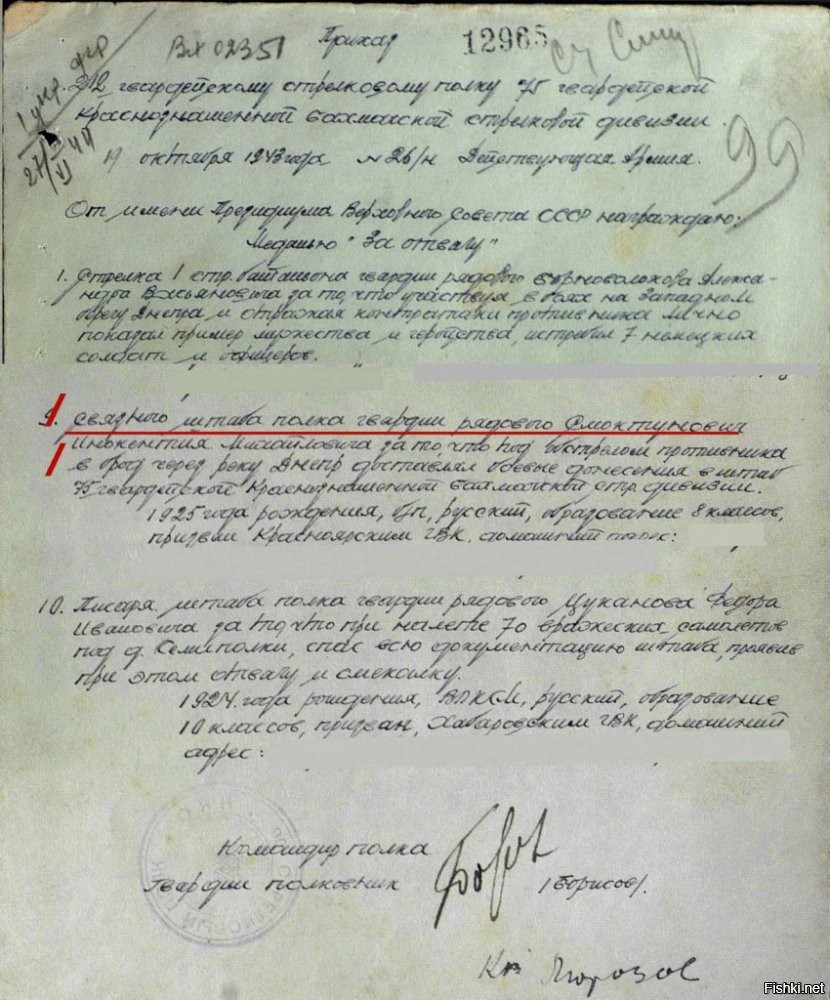 Вх 02351 Приказ 12965
212 гвардейскому стрелковому полку 75 гвардейской
Краснознаменной Бахмачской стрелковой дивизии.
19 октября 1943 года № 26/н Действующая Армия.
99
От имени Президиума Верховного Совета СССР награждаю:
Медалью "За отвагу"
1. Стрелка 1 стр. батальона гвардии рядового Алекса-
ндра за то, что участвуя в боях на Западном
берегу Днепра и отражая контратаки противника лично
показал пример мужества и геройства, истребил 7 немецких
солдат и офицеров.
9. Связного штаба полка гвардии рядового Смоктунович
Инокентия Михайловича за то, что под обстрелом противника
в брод через реку Днепр доставлял боевые донесения в штаб
75 гвардейской Краснознаменной Бахмачской стр. дивизии.
1925 года рождения, б/п, русский, образование 8 классов,
призван Красноярским ГВК. домашний адрес:
10. Писаря штаба полка гвардии рядового Цуканова Федора
Ивановича за то, что при налете 70 вражеских самолетов
под д. Семиполки, спас всю документацию штаба, проявив
при этом отвагу и смекалку.
1924 года рождения, ВЛКСМ, русский, образование
10 классов, призван, Хабаровским ГВК, домашний
адрес:
Командир полка
Гвардии полковник /Борисов/.
Кв Морозов
Fishki.net